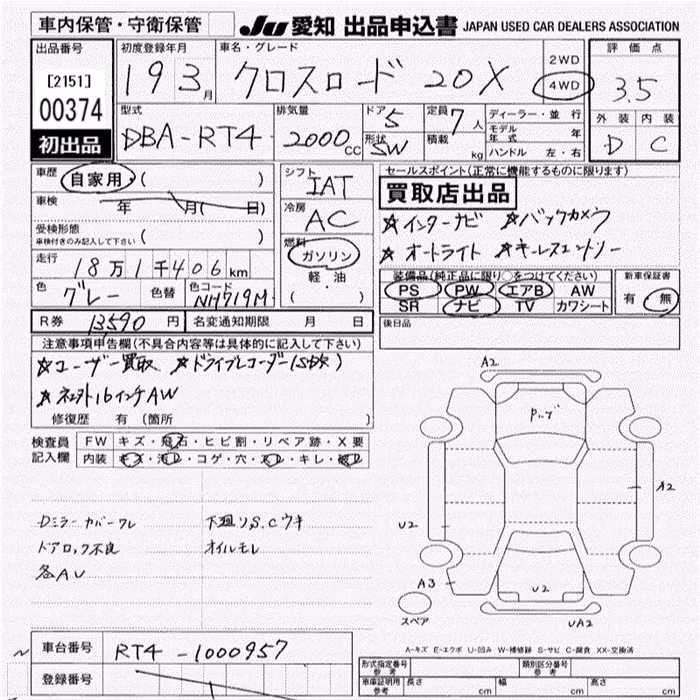 車内保管・守衛保管
JU 愛知 出品申込書 JAPAN USED CAR DEALERS ASSOCIATION
出品番号
[2151]
00374
初出品
初度登録年月
19 3月
車名・グレード
クロスロード 20X
2WD
4WD
評価点
3.5
外装 内装
D C
型式
DBA-RT4
排気量
2000cc
ドア 5
形状 SW
定員 7人
積載 kg
ディーラー・並行
モデル年式 年
ハンドル 左・右
車歴 自家用・( )
車検 年 月( 日)
受検形態
車検付きのみ記入して下さい ( )
走行 18万1千406km
色 グレー 色替 色コード NH719M
シフト
IAT
冷房
AC
燃料
ガソリン
軽・油
( )
セールスポイント(正常に機能するものに限ります)
買取店出品
☆インターナビ ☆バックカメラ
☆オートライト ☆キーレスエントリー
装備品(純正品に限り○をつけてください)
PS PW エアB AW
SR ナビ TV カワシート
新車保証書
有・無
R券 13590円 名変通知期限 月 日
後日品
注意事項申告欄(不具合内容等は具体的に記入して下さい)
☆ユーザー買取 ☆ドライブレコーダー(
☆ネオ外16インチAW
修復歴 有(箇所 )
検査員
記入欄
FW キズ・飛石・ヒビ割・リペア跡・X要
内装 キズ・汚レ・コゲ・穴・スレ・キレ・
Dミラーカバーワレ 下廻りS.Cウキ
ドアロック不良 オイルモレ
各AU
A2
A2
U2
A3
U2
UA2
スペア
A-キズ E-エクボ U-凹み W-補修跡 S-サビ C-腐食 XX-交換済
車台番号 RT4-1000957
登録番号
形式指定番号
参考
類別区分番号
参考
車庫証明用
参考
長さ cm 幅 cm 高さ cm